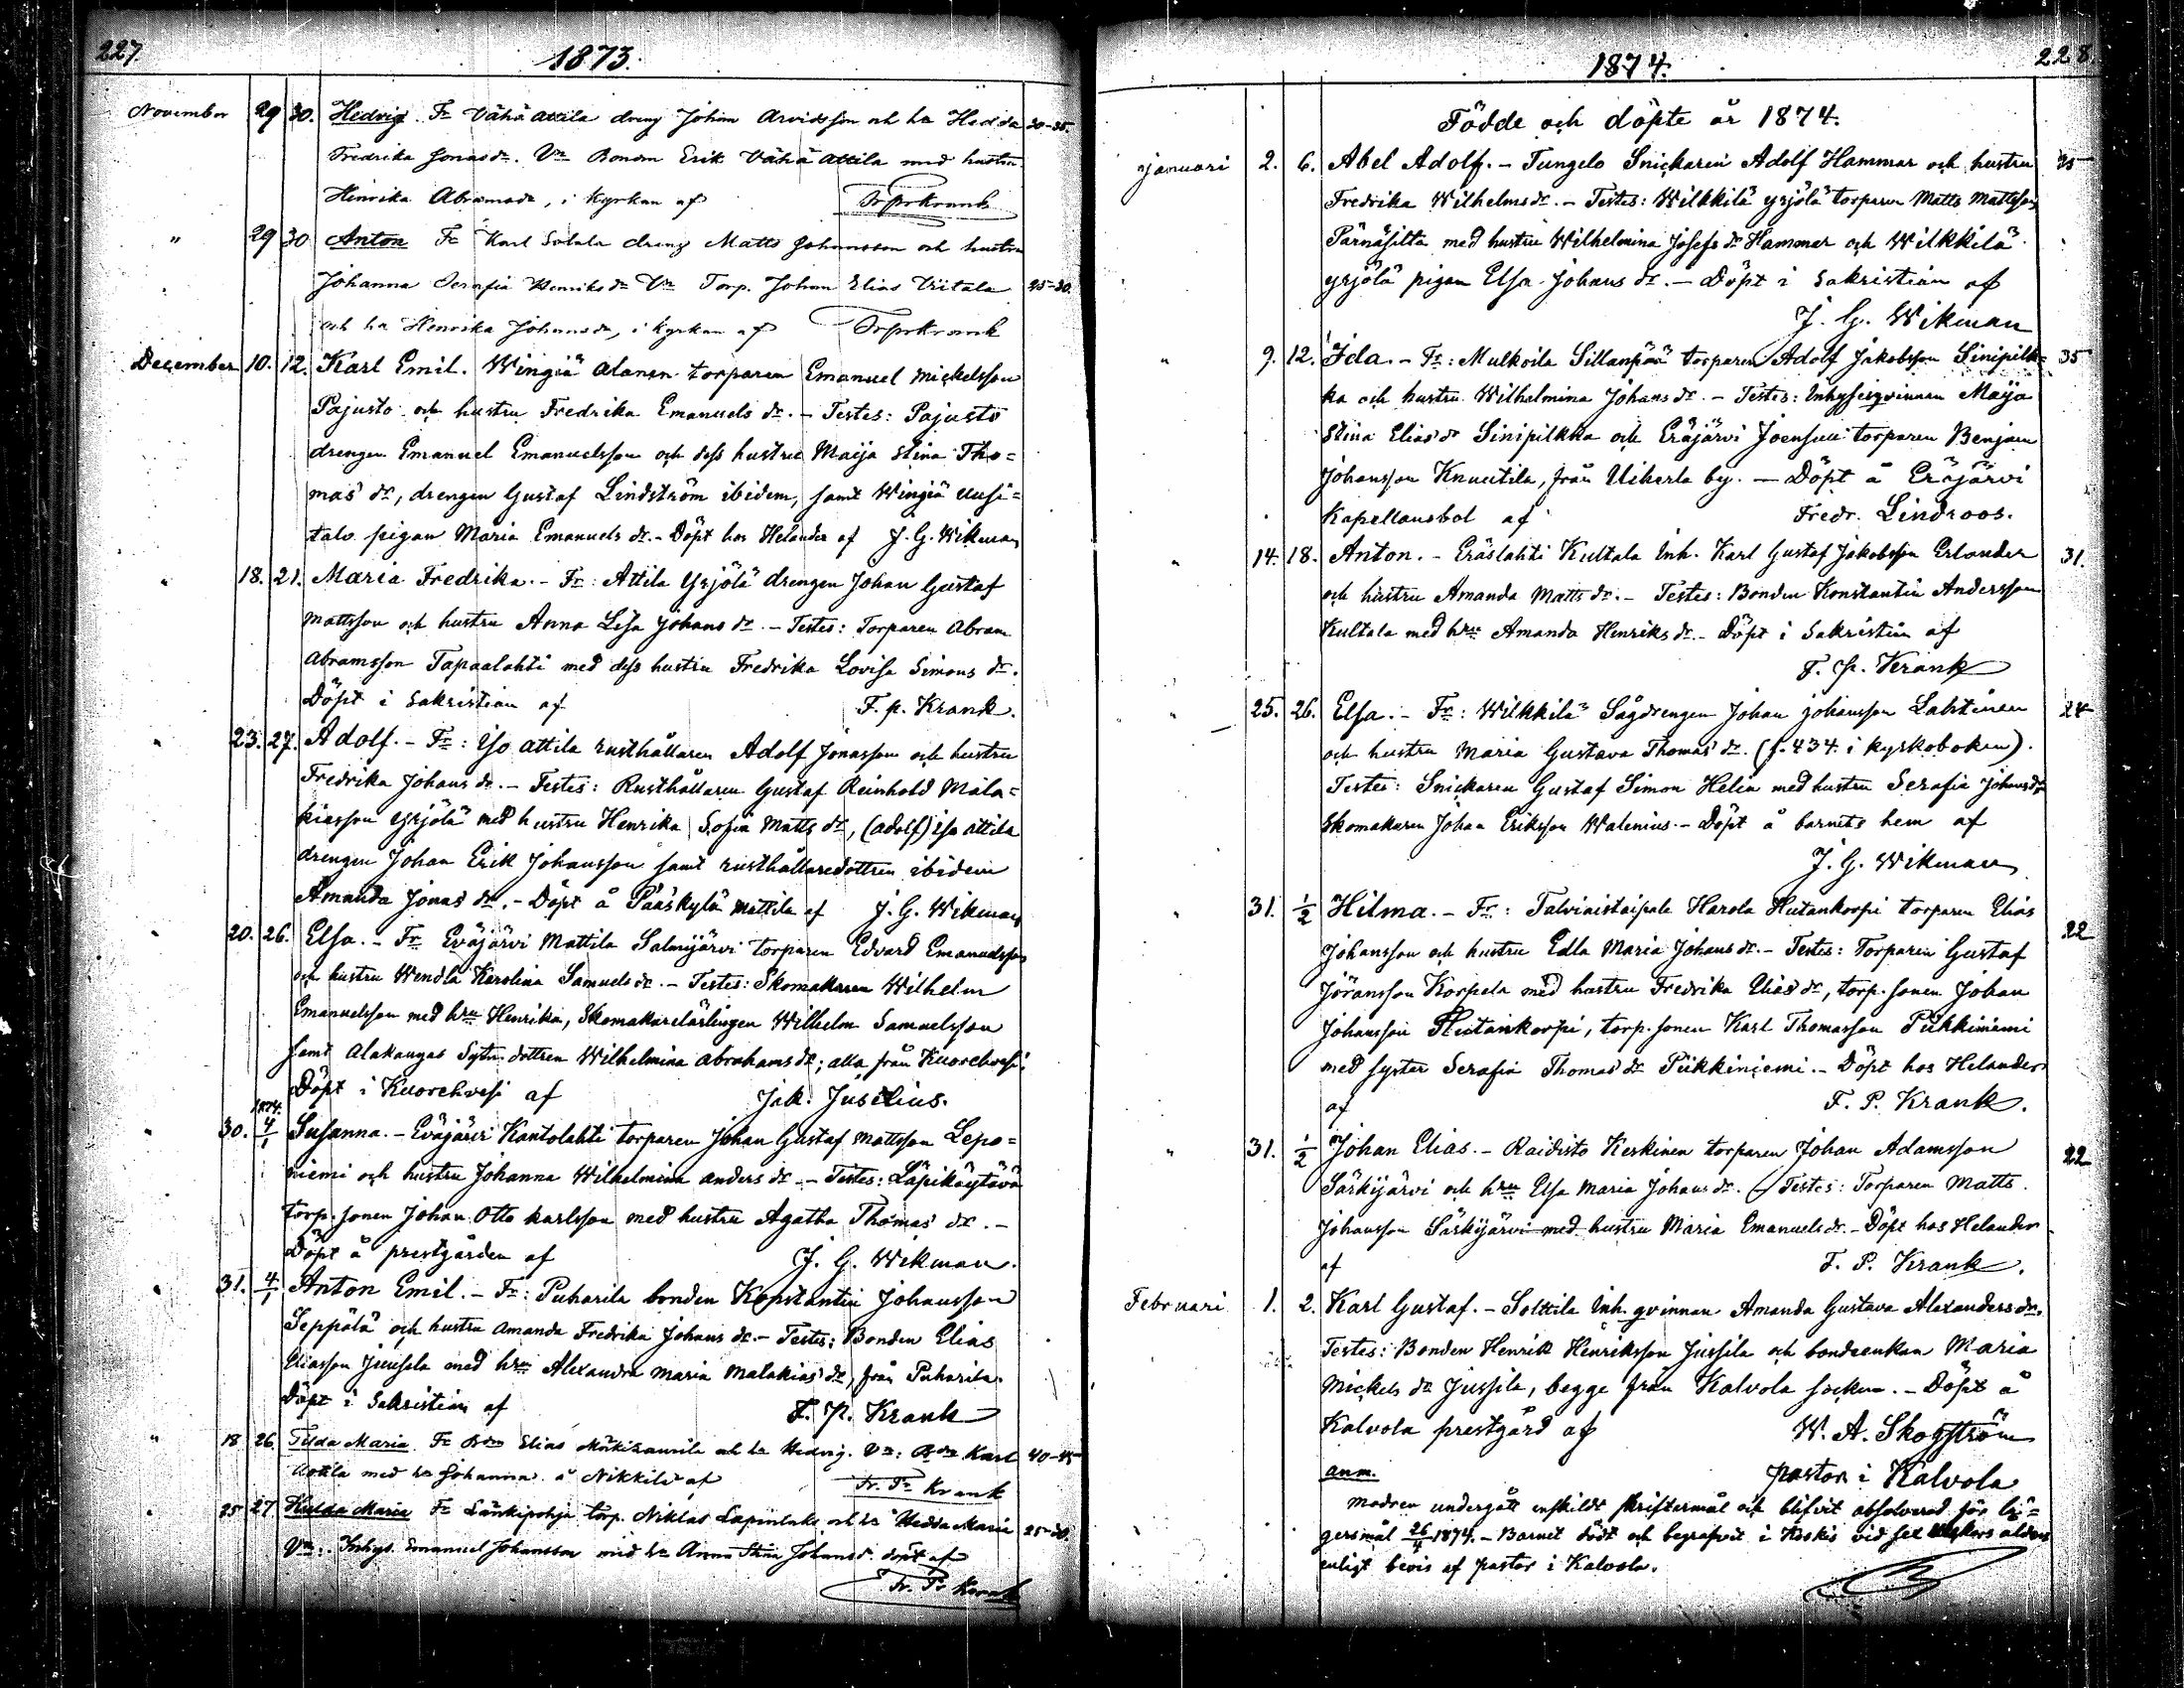 227.
1873.
November 29 30. Hedvig. Fr Vähä Attila dreng Johan Arvidsson och h:u Hedda 30-35.
Fredrika Jonasdr. Vn Bonden Erik Vähä Attila med hustru
Henrika Abramsdr, i kyrkan af Fr P Krank
" 29 30 Anton Fr Karl Sotala dreng Matts Johansson och hustru
Johanna Serafia Henriksdr Vn Torp. Johan Elias Viitala 25-30.
och h:u Henrika Johansdr, i kyrkan af Fr P Krank
December 10. 12. Karl Emil. Wingiä Alanen torparen Emanuel Mickelsson
Pajusto och hustru Fredrika Emanuels dr. – Testes: Pajusto
drengen Emanuel Emanuelsson och dess hustru Maija Stina Tho=
mas dr, drengen Gustaf Lindström ibidem, samt Wingiä Uusi=
talo pigan Maria Emanuels dr. – Döpt hos Helander af J. G. Wikman
" 18. 21. Maria Fredrika. – Fr: Attila Yrjölä drengen Johan Gustaf
Mattsson och hustru Anna Lisa Johans dr. – Testes: Torparen Abram
Abramsson Tapaalahti med dess hustru Fredrika Lovisa Simons dr.
Döpt i Sakristian af F. P. Krank.
" 23. 27. Adolf. – Fr: Yso Attila rusthållaren Adolf Jonasson och hustru
Fredrika Johans dr. – Testes: Rusthållaren Gustaf Reinhold Mala=
kiasson Yrjölä med hustru Henrika Sofia Matts dr, (Adolf) Iso Attila
drengen Johan Erik Johansson samt rusthållaredottren ibidem
Amanda Jonas dr. – Döpt å Pääskylä Mattila af J. G. Wikman
" 20. 26. Elsa. – Fr Eräjärvi Mattila Salmijärvi torparen Edvard Emanuelsson
och hustru Wendla Karolina Samuels dr. – Testes: Skomakaren Wilhelm
Emanuelsson med hru Henrika, Skomakarelärlingen Wilhelm Samuelsson
samt Alakangas Sytn. dottren Wilhelmina Abrahams dr; alla från Kuorehvesi.
Döpt i Kuorehvesi af Jak. Juselius.
1874.
" 30. 4/1 Susanna. – Eräjärvi Kantolahti torparen Johan Gustaf Mattsson Lepo=
niemi och hustru Johanna Wilhelmina Anders dr. – Testes: Läpikäytävä
torp. sonen Johan Otto Karlsson med hustru Agatha Thomas dr. –
Döpt å prestgården af J. G. Wikman.
" 31. 4/1 Anton Emil. – Fr: Puharila bonden Konstantin Johansson
Seppälä och hustru Amanda Fredrika Johans dr. – Testes: Bonden Elias
Eliasson Juusela med hru Alexandra Maria Malakias dr, från Puharila.
Döpt i Sakristian af F. P. Krank
" 18 26. Tilda Maria. Fr Bdn Elias och h:u Hedvig. Vn: Bdn Karl 40-45
med h:u Johanna. å Nikkilä af Fr. P. Krank
25 27 Hulda Maria Fr Länkipohja torp. Niklas och h:u Hedda Maria 25-30.
Vn: Inhys. Emanuel Johansson med h:u Anna Stina Johansd. döpt af
Fr. P. Krank
228.
1874.
Födde och döpte år 1874.
Januari 2. 6. Abel Adolf. – Tungelo Snickaren Adolf Hammar och hustru 35
Fredrika Wilhelms dr. – Testes: Wilkkilä Yrjölä torparen Matts Mattsson
Pärnäsilta med hustru Wilhelmina Josefs dr Hammar och Wilkkilä
Yrjölä pigan Elsa Johans dr. – Döpt i Sakristian af
J. G. Wikman
" 9. 12. Ida. – Fr: Mulkoila Sillanpää torparen Adolf Jakobsson Sinipilk= 35
ka och hustru Wilhelmina Johans dr. – Testes: Inhysesqvinnan Maija
Stina Elias dr Sinipilkka och Eräjärvi Joensuu torparen Benjam
Johansson Knuutila, från Uiherla by. – Döpt å Eräjärvi
Kapellansbol af Fredr. Lindroos.
" 14. 18. Anton. – Eräslahti Kultala Inh. Karl Gustaf Jakobsson Erlander 31.
och hustru Amanda Matts dr. – Testes: Bonden Konstantin Andersson
Kultala med hru Amanda Henriks dr. – Döpt i Sakristian af
F. P. Krank
" 25. 26. Elsa. – Fr: Wilkkilä Sågdrengen Johan Johansson Lahtinen 24
och hustru Maria Gustava Thomas dr. (f. 434. i kyrkoboken).
Testes: Snickaren Gustaf Simon Helin med hustru Serafia Johans dr
Skomakaren Johan Eriksson Walenius. – Döpt å barnets hem af
J. G. Wikman
" 31. 1/2 Hilma. – Fr: Talviaistaipale Harola Hutankorpi torparen Elias 22
Johansson och hustru Edla Maria Johans dr. – Testes: Torparen Gustaf
Jöransson Korpela med hustru Fredrika Elias dr, torp. sonen Johan
Johansson Hutankorpi, torp. sonen Karl Thomasson Piikkiniemi
med syster Serafia Thomas dr Piikkiniemi. – Döpt hos Helander
af F. P. Krank.
" 31. 1/2 Johan Elias. – Raidisto Keskinen torparen Johan Adamsson 22
Särkijärvi och hru Elsa Maria Johans dr. – Testes: Torparen Matts
Johansson Särkijärvi med hustru Maria Emanuels dr. – Döpt hos Helander
af F. P. Krank.
Februari 1. 2. Karl Gustaf. – Solttila Inh. qvinnan Amanda Gustava Alexanders dr.
Testes: Bonden Henrik Henriksson Jussila och bondeenkan Maria
Mickels dr Jussila, begge från Kalvola socken. – Döpt å
Kalvola prestgård af W. A. Skogström
anm. pastor i Kalvola
Modren undergått enskildt skriftermål och blifvit absolverad för lä=
gersmål 26/4 1874. – Barnet dödt och begrafvit i Koskis vid sex veckors ålder
enligt bevis af pastor i Kalvola.